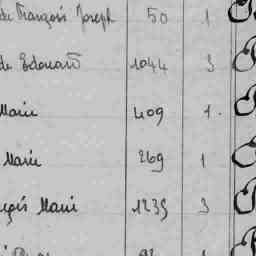 de François Joseph 50 1
de Edouard 1044 3
Marie 409 1.
Marie 269 1
çois Marie 1239 3